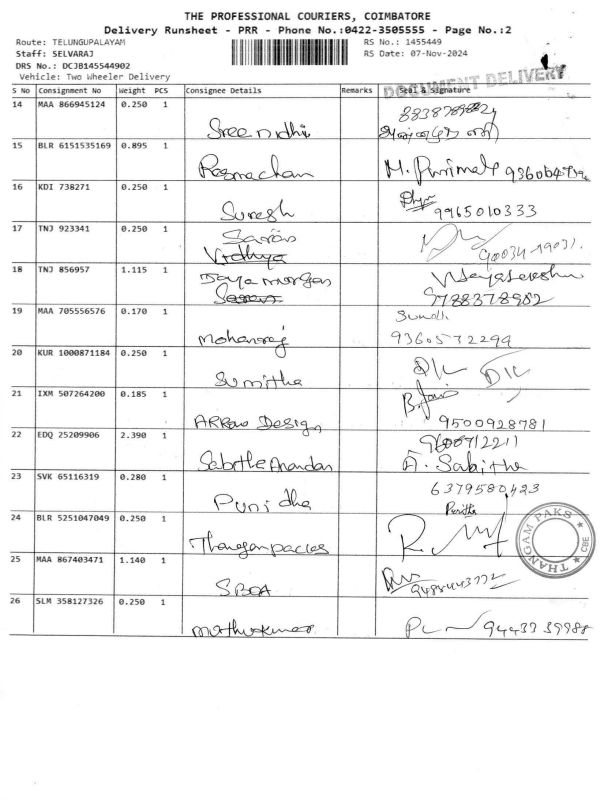 THE PROFESSIONAL COURIERS, COIMBATORE
Delivery Runsheet - PRR - Phone No.:0422-3505555 - Page No.:2
Route: TELUNGUPALAYAM RS No.: 1455449
Staff: SELVARAJ RS Date: 07-Nov-2024
DRS No.: DCJB145544902
Vehicle: Two Wheeler Delivery
DOCUMENT DELIVERY
S No Consignment No Weight PCS Consignee Details Remarks Seal & Signature
14 MAA 866945124 0.250 1
Sree nidhi
15 BLR 6151535169 0.895 1
16 KDI 738271 0.250 1
Suresh 9965010333
17 TNJ 923341 0.250 1
Vidhya
18 TNJ 856957 1.115 1
Jaya murgan
9788378982
19 MAA 705556576 0.170 1
Mohanraj 9360572299
20 KUR 1000871184 0.250 1
Sumitha
21 IXM 507264200 0.185 1
ARRow Design 9500928781
22 EDQ 25209906 2.390 1
A. Sabitha
23 SVK 65116319 0.280 1 6379580423
Punidha
24 BLR 5251047049 0.250 1
THANGAM PAKS CBE
25 MAA 867403471 1.140 1
SBOA
26 SLM 358127326 0.250 1
Muthukumar